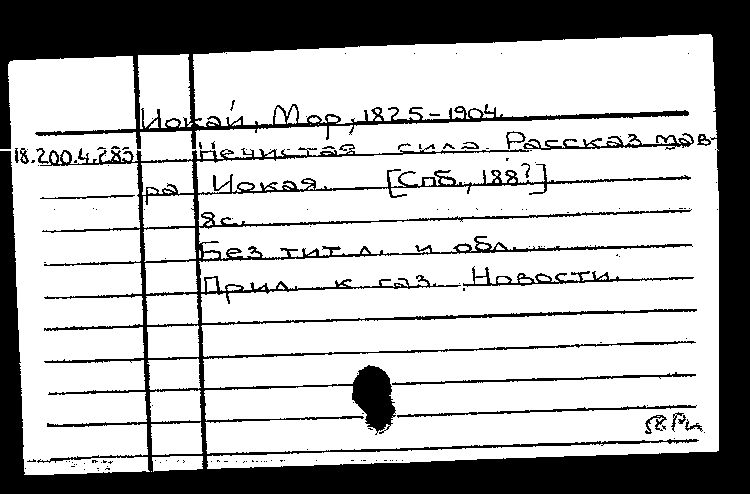 Иокай, Мор, 1825-1904.
18.200.4.283 Нечистая сила. Рассказ мав-
ра Иокая. [Спб., 188?].
8с.
Без тит. л. и обл.
Прил. к газ. Новости.